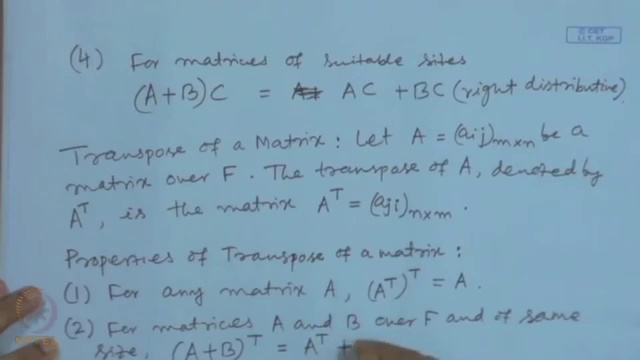 © CET
I.I.T. KGP
(4) For matrices of suitable sizes
(A+B)C = AC + BC (right distributive).
Transpose of a Matrix: Let A = (aij)m×n be a
matrix over F. The transpose of A, denoted by
A^T, is the matrix A^T = (aji)n×m.
Properties of Transpose of a matrix:
(1) For any matrix A, (A^T)^T = A.
(2) For matrices A and B over F and of same
size, (A+B)^T = A^T +